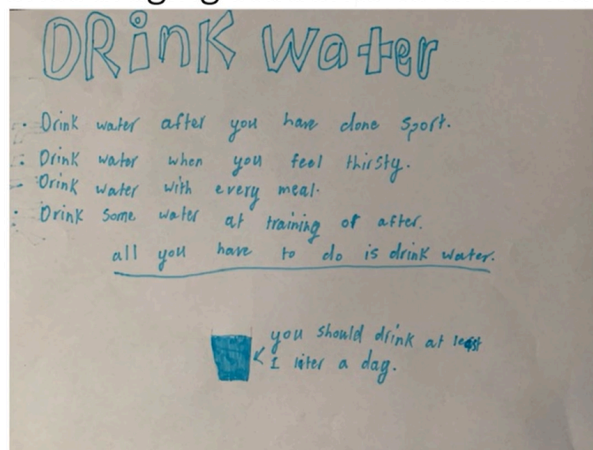 DRink water
• Drink water after you have done sport.
• Drink water when you feel thirsty.
- Drink water with every meal.
• Drink some water at training of after.
all you have to do is drink water.
you should drink at least
1 liter a day.